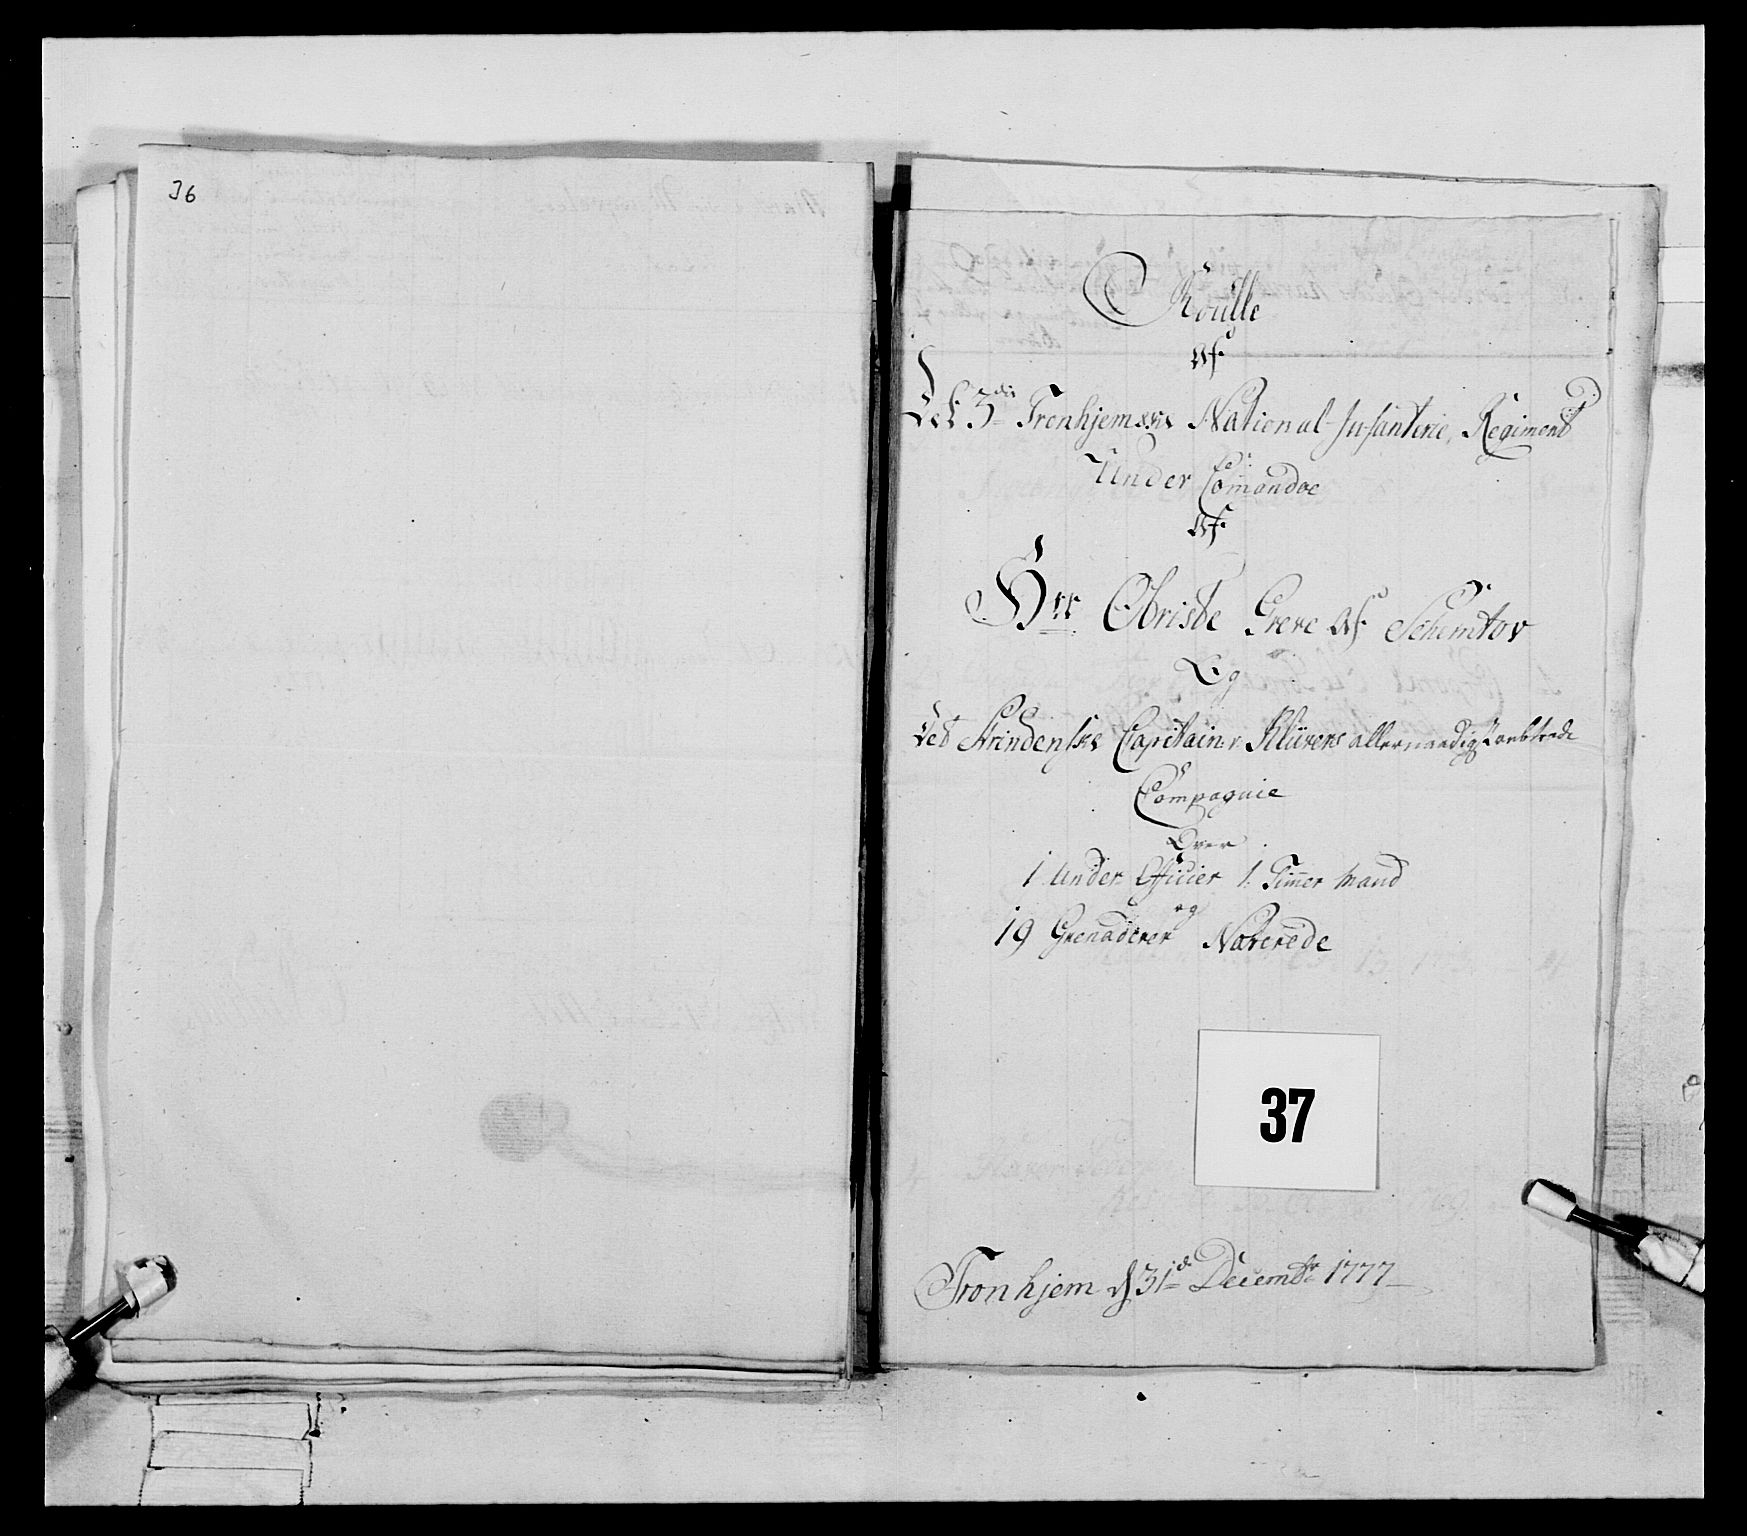 36
Roulle
Af
Det 3die Tronhjemske National Infanterie, Regiment
Under Comandoe
Af
Hrr Obriste Greve Af Schmettov
Og
Det Strindenske Capitain v: Klüvers allernaadigst anbtrode
Compagnie
Over
1 Under Officier 1. Tim̄er Mand
og
19 Grenaderer Naverede
37
Tronhjem d 31te Decembr 1777